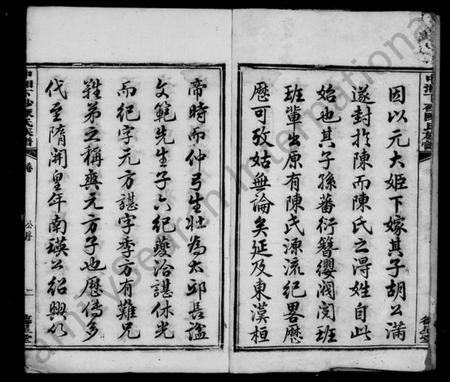 因以元大姬下嫁其子胡公滿
遂封於陳而陳氏之淂姓自此
始也其子孫蕃衍簪纓閥閲班
班軰公原有陳氏源流紀畧厯
厯可攷姑無論矣延及東漢桓
帝時而仲弓生壯為太邱長謚
文範先生子六紀夔洽諶休光
而紀字元方諶字季方有難兄
難弟之稱與元方子也厯傳多
代至隋開皇年南瑛公紹興仍